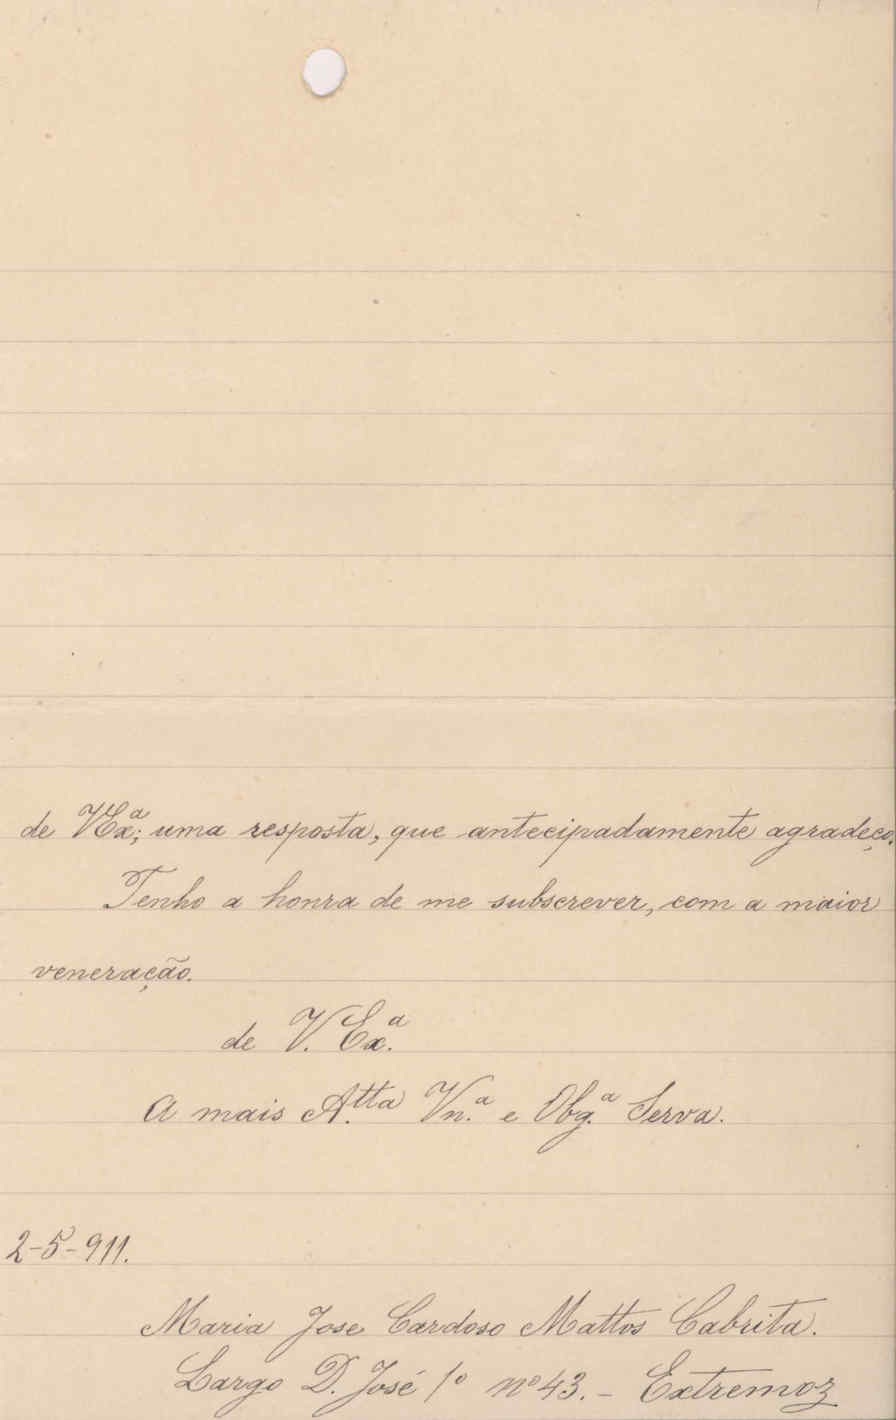 de VEx.ª; uma resposta, que antecipadamente agradeço.
Tenho a honra de me subscrever, com a maior
veneração.
de V. Ex.ª
A mais A.tta Vn.ª e Obg.ª Serva.
2-5-911.
Maria Jose Cardoso Mattos Cabrita.
Largo D. José 1º nº 43. - Extremoz